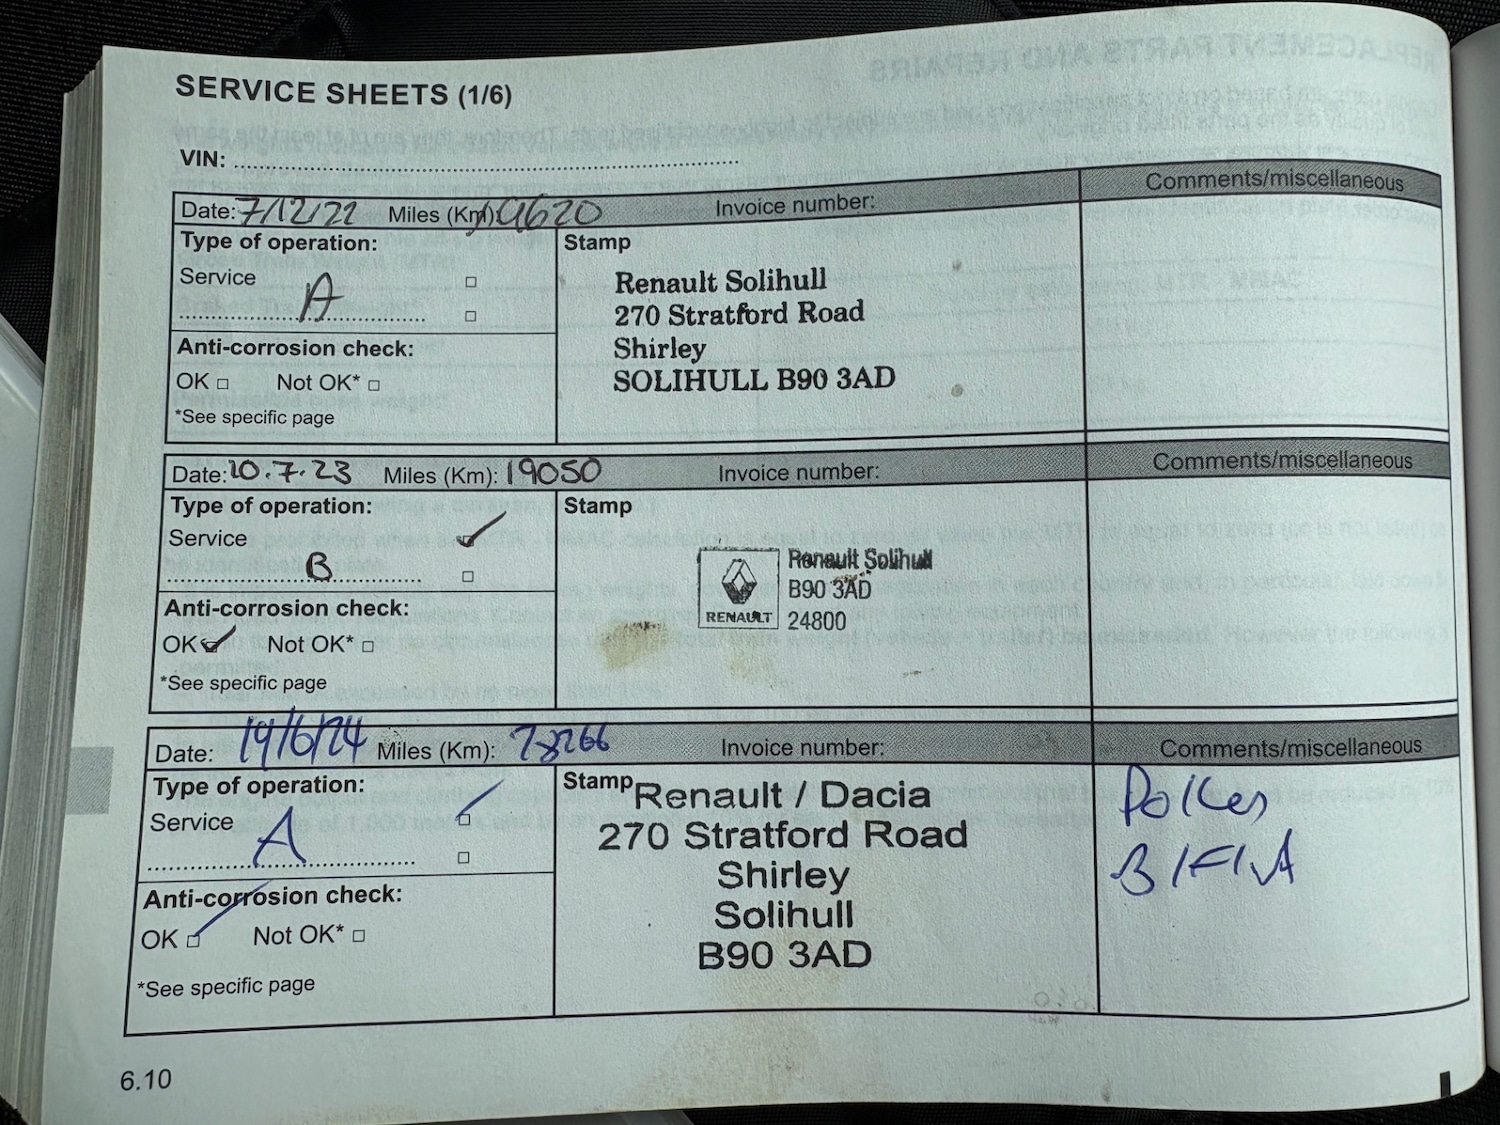 SERVICE SHEETS (1/6)
VIN:
Date: 7/12/22 Miles (Km): 9620 Invoice number: Comments/miscellaneous
Type of operation: Stamp
Service
A
Renault Solihull
270 Stratford Road
Shirley
SOLIHULL B90 3AD
Anti-corrosion check:
OK □ Not OK* □
*See specific page
Date: 10.7.23 Miles (Km): 19050 Invoice number: Comments/miscellaneous
Type of operation: Stamp
Service ✓
B
RENAULT
Renault Solihull
B90 3AD
24800
Anti-corrosion check:
OK ✓ Not OK* □
*See specific page
Date: 19/6/24 Miles (Km): Invoice number: Comments/miscellaneous
Type of operation: Stamp
Service ✓
A
Renault / Dacia
270 Stratford Road
Shirley
Solihull
B90 3AD
Pollen
B/Fluid
Anti-corrosion check:
OK ✓ Not OK* □
*See specific page
6.10